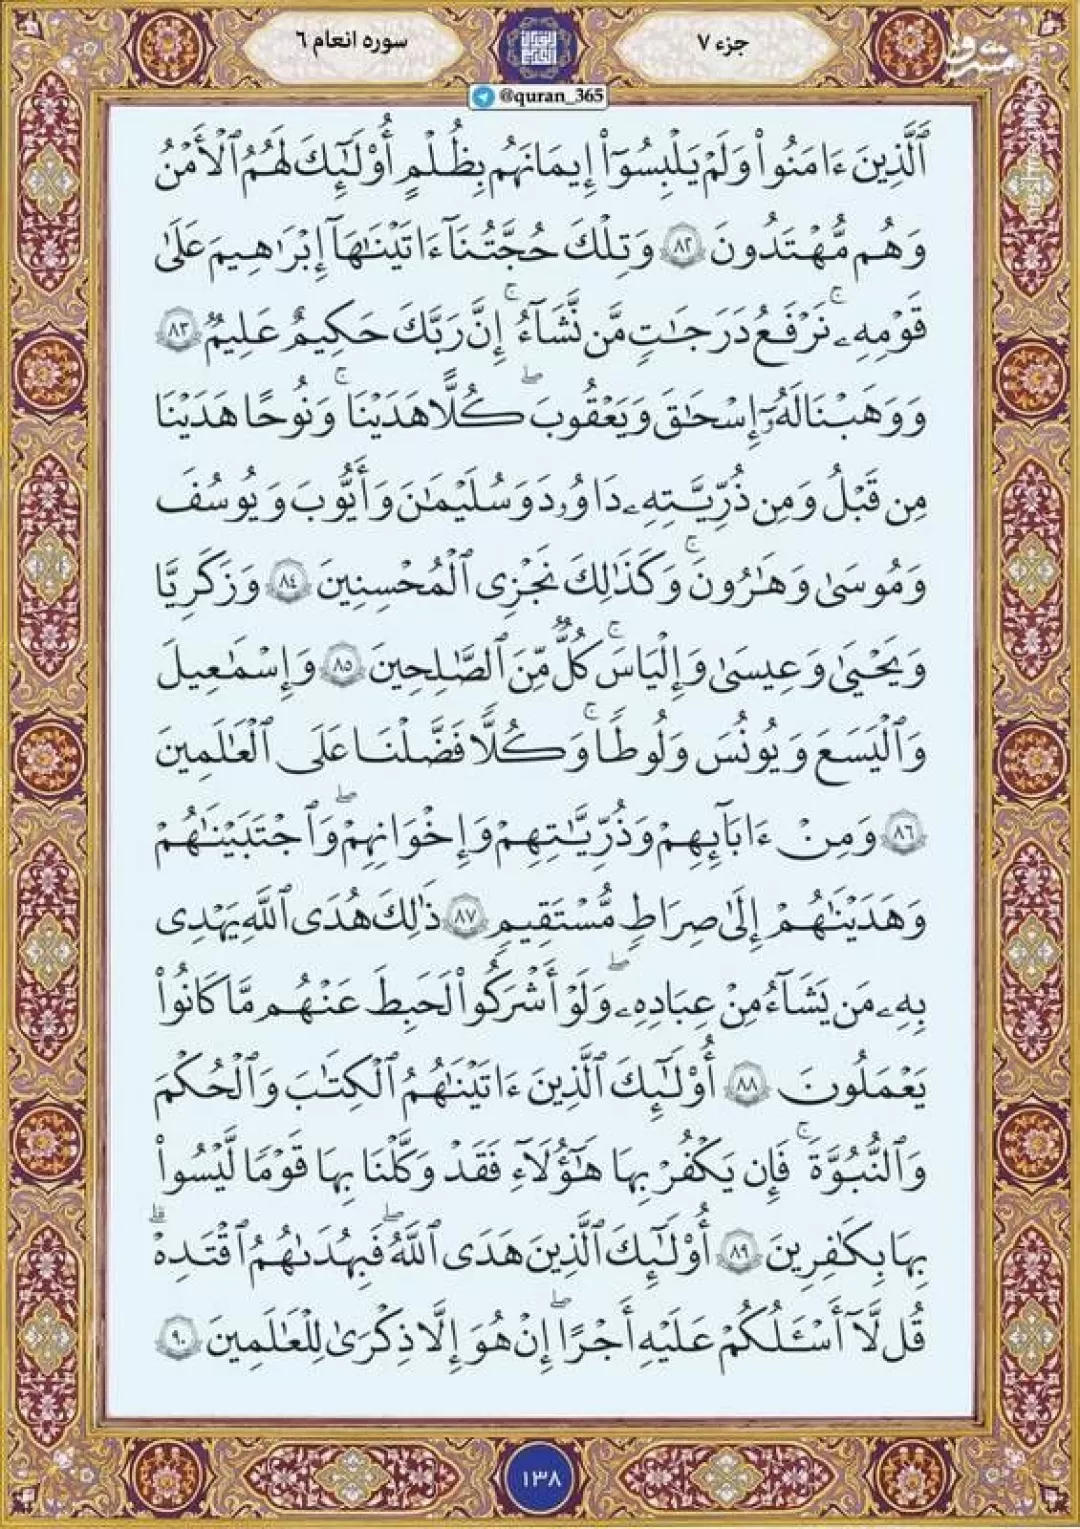 جزء ۷
سوره انعام ۶
مشرق
mashreghnews.ir
@quran_365
ٱلَّذِينَ ءَامَنُوا۟ وَلَمْ يَلْبِسُوٓا۟ إِيمَانَهُم بِظُلْمٍ أُو۟لَـٰٓئِكَ لَهُمُ ٱلْأَمْنُ
وَهُم مُّهْتَدُونَ ۸۲ وَتِلْكَ حُجَّتُنَآ ءَاتَيْنَـٰهَآ إِبْرَٰهِيمَ عَلَىٰ
قَوْمِهِۦ ۚ نَرْفَعُ دَرَجَـٰتٍ مَّن نَّشَآءُ ۚ إِنَّ رَبَّكَ حَكِيمٌ عَلِيمٌ ۸۳
وَوَهَبْنَا لَهُۥٓ إِسْحَـٰقَ وَيَعْقُوبَ ۖ كُلًّا هَدَيْنَا ۚ وَنُوحًا هَدَيْنَا
مِن قَبْلُ وَمِن ذُرِّيَّتِهِۦ دَاوُۥدَ وَسُلَيْمَـٰنَ وَأَيُّوبَ وَيُوسُفَ
وَمُوسَىٰ وَهَـٰرُونَ ۚ وَكَذَٰلِكَ نَجْزِى ٱلْمُحْسِنِينَ ۸٤ وَزَكَرِيَّا
وَيَحْيَىٰ وَعِيسَىٰ وَإِلْيَاسَ ۖ كُلٌّ مِّنَ ٱلصَّـٰلِحِينَ ۸۵ وَإِسْمَـٰعِيلَ
وَٱلْيَسَعَ وَيُونُسَ وَلُوطًا ۚ وَكُلًّا فَضَّلْنَا عَلَى ٱلْعَـٰلَمِينَ
۸۶ وَمِنْ ءَابَآئِهِمْ وَذُرِّيَّـٰتِهِمْ وَإِخْوَٰنِهِمْ ۖ وَٱجْتَبَيْنَـٰهُمْ
وَهَدَيْنَـٰهُمْ إِلَىٰ صِرَٰطٍ مُّسْتَقِيمٍ ۸۷ ذَٰلِكَ هُدَى ٱللَّهِ يَهْدِى
بِهِۦ مَن يَشَآءُ مِنْ عِبَادِهِۦ ۚ وَلَوْ أَشْرَكُوا۟ لَحَبِطَ عَنْهُم مَّا كَانُوا۟
يَعْمَلُونَ ۸۸ أُو۟لَـٰٓئِكَ ٱلَّذِينَ ءَاتَيْنَـٰهُمُ ٱلْكِتَـٰبَ وَٱلْحُكْمَ
وَٱلنُّبُوَّةَ ۚ فَإِن يَكْفُرْ بِهَا هَـٰٓؤُلَآءِ فَقَدْ وَكَّلْنَا بِهَا قَوْمًا لَّيْسُوا۟
بِهَا بِكَـٰفِرِينَ ۸۹ أُو۟لَـٰٓئِكَ ٱلَّذِينَ هَدَى ٱللَّهُ ۖ فَبِهُدَىٰهُمُ ٱقْتَدِهْ ۗ
قُل لَّآ أَسْـَٔلُكُمْ عَلَيْهِ أَجْرًا ۖ إِنْ هُوَ إِلَّا ذِكْرَىٰ لِلْعَـٰلَمِينَ ۹۰
۱۳۸